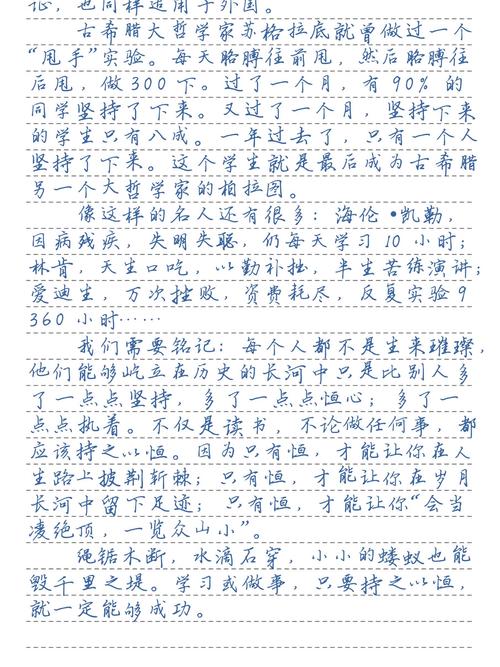 证，也同样适用于外国。
古希腊大哲学家苏格拉底就曾做过一个
“甩手”实验。每天胳膊往前甩，然后胳膊往
后甩，做300下。过了一个月，有90%的
同学坚持了下来。又过了一个月，坚持下来
的学生只有八成。一年过去了，只有一个人
坚持了下来。这个学生就是最后成为古希腊
另一个大哲学家的柏拉图。
像这样的名人还有很多：海伦•凯勒，
因病残疾，失明失聪，仍每天学习10小时；
林肯，天生口吃，以勤补拙，半生苦练演讲；
爱迪生，万次挫败，资费耗尽，反复实验9
360小时……
我们需要铭记：每个人都不是生来璀璨，
他们能够屹立在历史的长河中只是比别人多
了一点点坚持，多了一点点恒心；多了一
点点执着。不仅是读书，不论做任何事，都
应该持之以恒。因为只有恒，才能让你在人
生路上披荆斩棘；只有恒，才能让你在岁月
长河中留下足迹；只有恒，才能让你“会当
凌绝顶，一览众山小”。
绳锯木断，水滴石穿，小小的蝼蚁也能
毁千里之堤。学习或做事，只要持之以恒，
就一定能够成功。